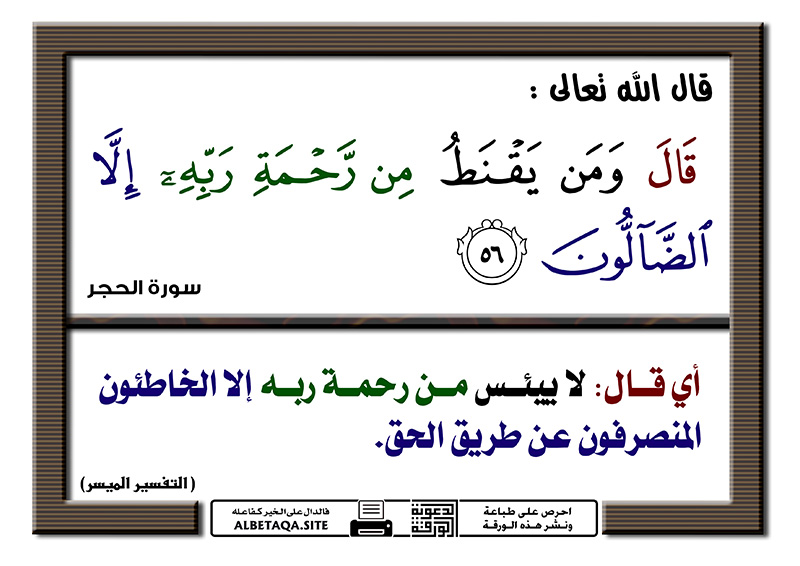 قال الله تعالى :
قَالَ وَمَن يَقْنَطُ مِن رَّحْمَةِ رَبِّهِۦٓ إِلَّا
ٱلضَّآلُّونَ ٥٦
سورة الحجر
أي قــال: لا ييئــس مــن رحمــة ربــه إلا الخاطئون
المنصرفون عن طريق الحق.
(التفسير الميسر)
احرص على طباعة
ونشر هذه الورقة
الدعوية
الورقة
فالدال على الخير كفاعله
ALBETAQA.SITE